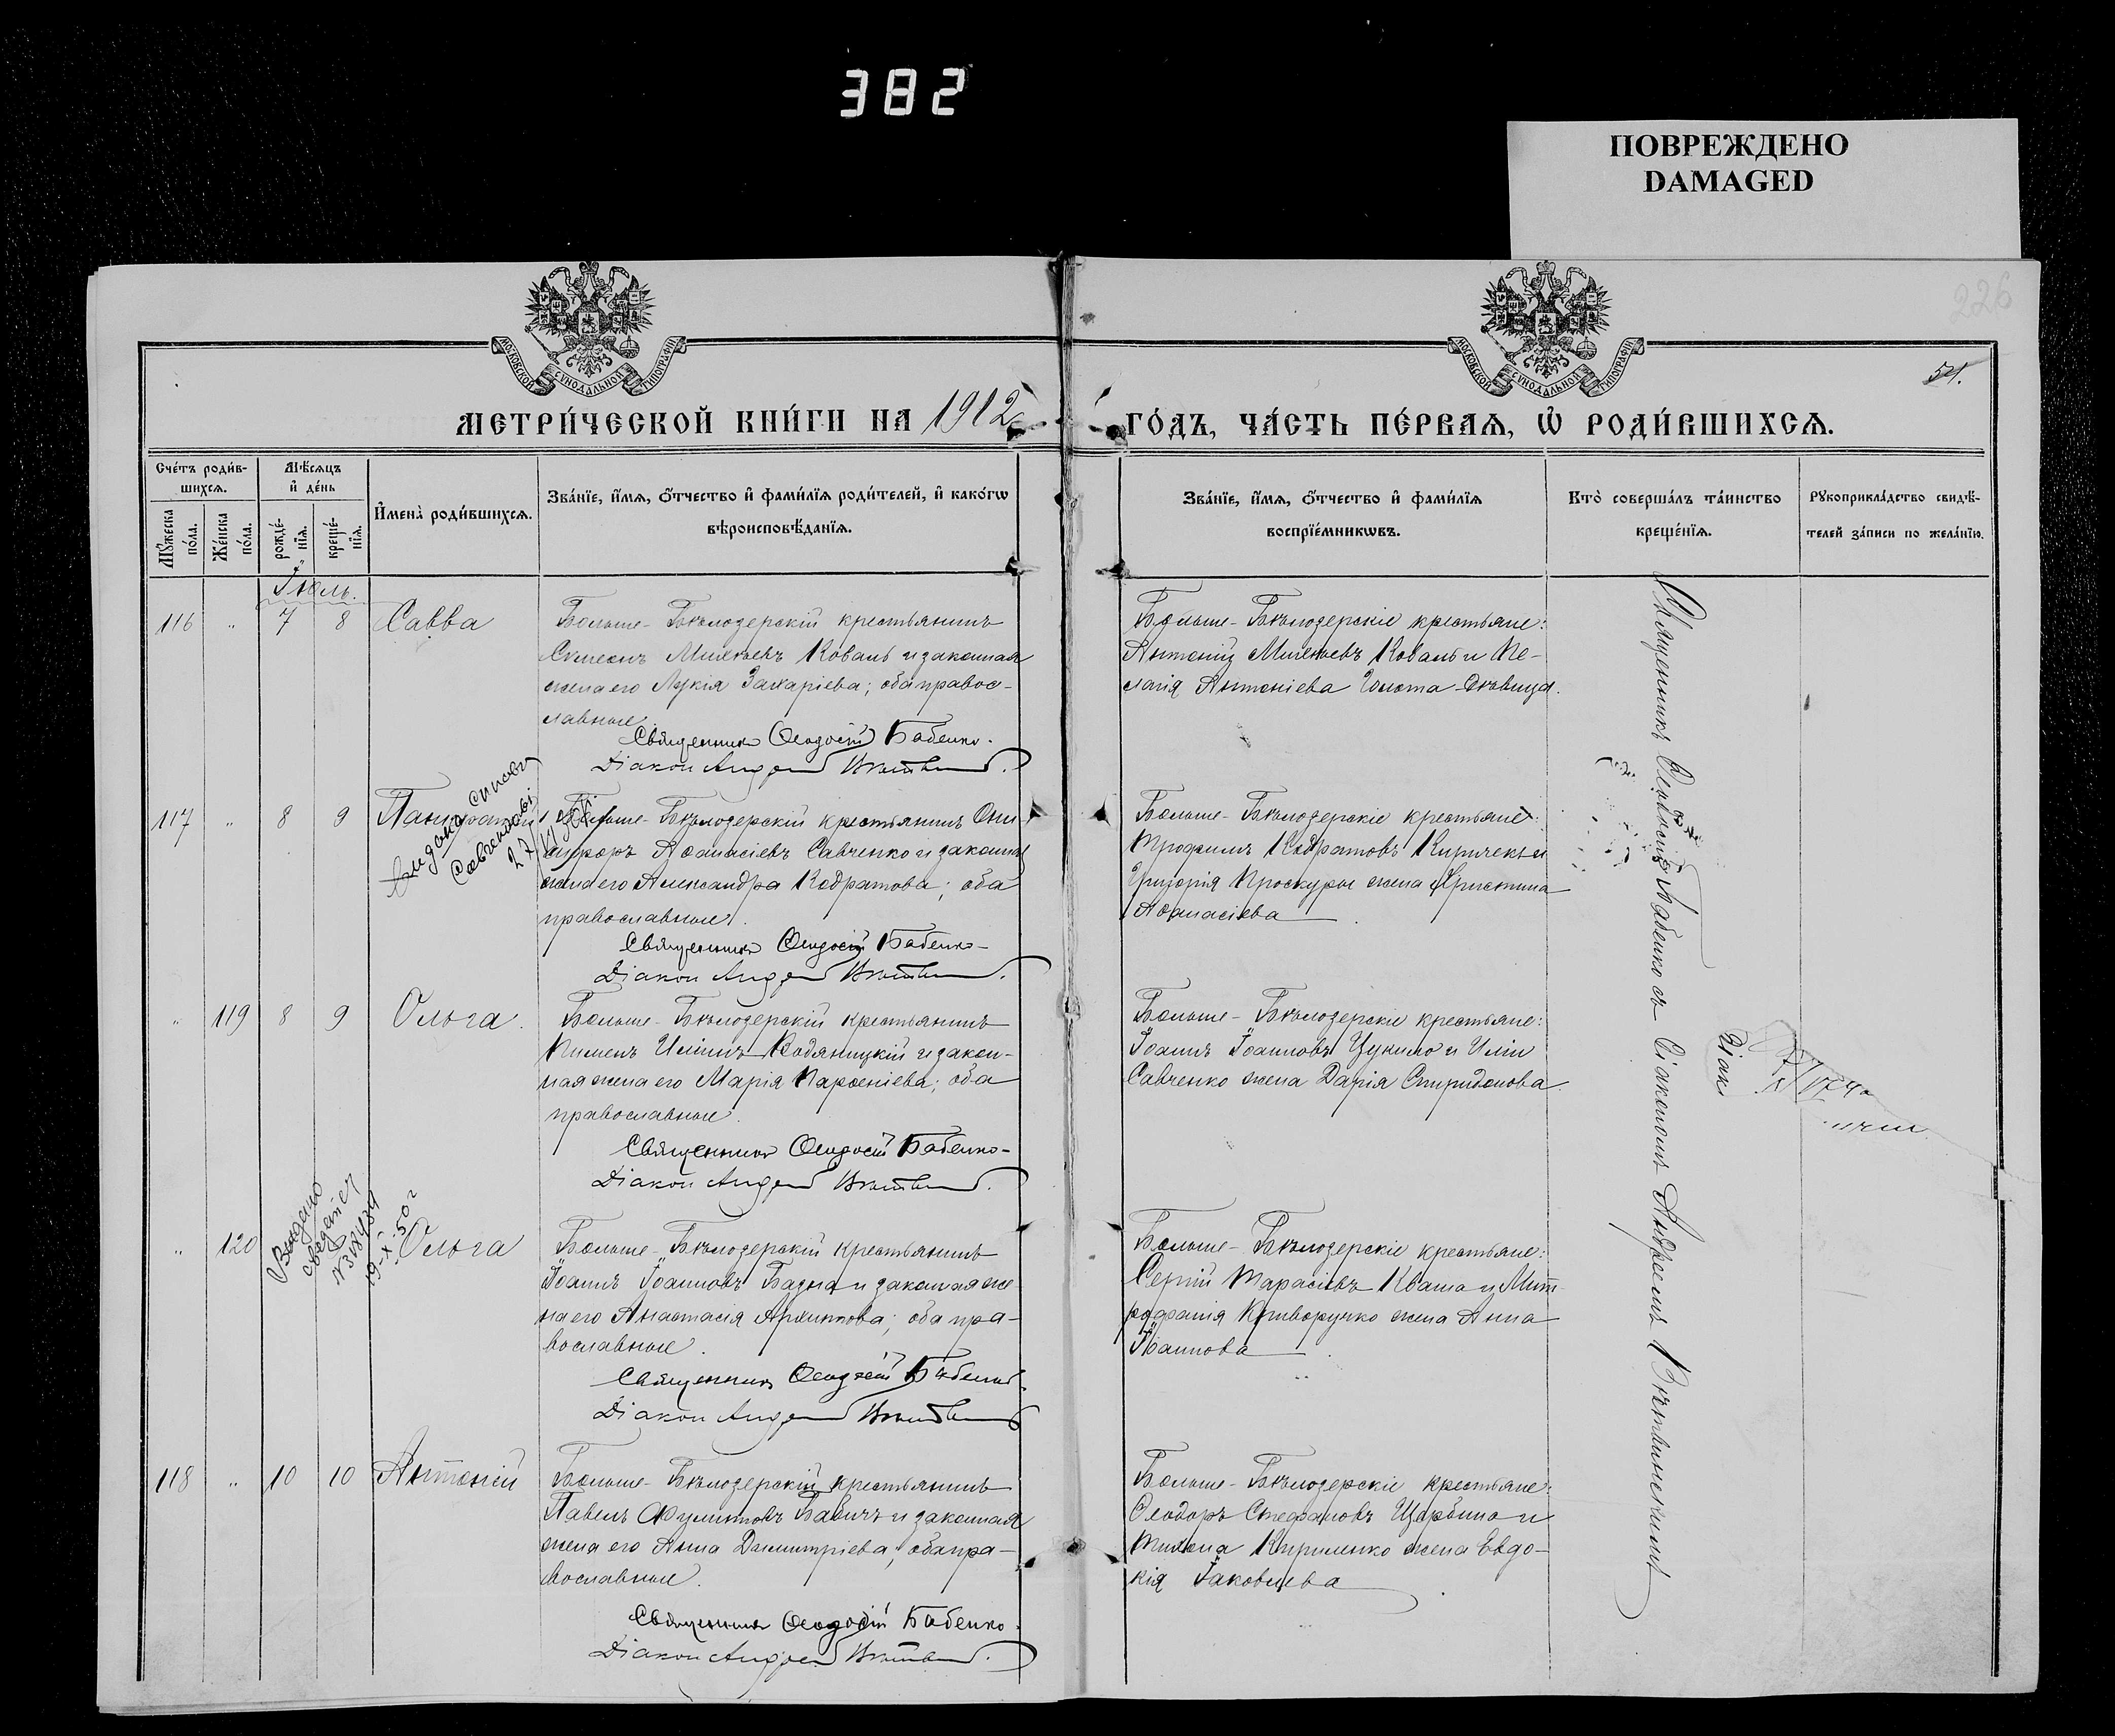 382
ПОВРЕЖДЕНО
DAMAGED
226
51.
МОСКОВСКОЙ СѴНОДАЛЬНОЙ ТИПОГРАФІИ
МОСКОВСКОЙ СѴНОДАЛЬНОЙ ТИПОГРАФІИ
МЕТРИ́ЧЕСКОЙ КНИ́ГИ НА 1912
ГО́ДЪ, ЧА́СТЬ ПЕ́РВАѦ, Ѡ҆ РОДИ́ВШИХСѦ.
Сче́тъ роди́в-
шихсѧ.
Мѣ́сѧцъ
и҆ де́нь
Мꙋ́жеска
по́ла.
Же́нска
по́ла.
рожде́-
нїѧ.
креще́-
нїѧ.
И҆мена̀ роди́вшихсѧ.
Зва́нїе, и҆́мѧ, ѻ҆́тчество и҆ фами́лїѧ роди́телей, и҆ како́гѡ
вѣроисповѣ́данїѧ.
Зва́нїе, и҆́мѧ, ѻ҆́тчество и҆ фами́лїѧ
воспрїе́мникѡвъ.
Кто̀ соверша́лъ та́инство
креще́нїѧ.
Рꙋкоприкла́дство свидѣ́-
телей за́писи по жела́нїю.
Іюль.
116 „ 7 8 Савва
Больше-Бѣлозерскій крестьянинъ
Симеонъ Милетьевъ Коваль и законная
жена его Лукія Захаріева; оба правос-
лавные
Священникъ Ѳеодосій Бабенко.
Діаконъ Андрей
Больше-Бѣлозерскіе крестьяне:
Антоній Милетьевъ Коваль и Пе-
лагія Антоніева Голота дѣвица.
117 „ 8 9
Савченкові
Больше-Бѣлозерскій крестьянинъ Они-
сифоръ Аѳанасіевъ Савченко и законная
жена его Александра Кодратова; оба
православные.
Священникъ Ѳеодосій Бабенко
Діаконъ Андрей
Больше-Бѣлозерскіе крестьяне:
Трофимъ Кодратовъ Киричекъ и
Григорія Проскуры жена Христина
Аѳанасіева
„ 119 8 9 Ольга.
Больше-Бѣлозерскій крестьянинъ
Пименъ Иліинъ Водяницкій и закон-
ная жена его Марія Парѳеніева; оба
православные.
Священникъ Ѳеодосій Бабенко
Діаконъ Андрей
Больше-Бѣлозерскіе крестьяне:
Іоаннъ Іоанновъ Цукило и Иліи
Савченко жена Дарія Спиридонова.
„ 120
Выдано
19-X-50 г
Ольга
Больше-Бѣлозерскій крестьянинъ
Іоаннъ Іоанновъ Бадна и законная же
на его Анастасія Архипова; оба пра-
вославные.
Священникъ Ѳеодосій Бабенко
Діаконъ Андрей
Больше-Бѣлозерскіе крестьяне:
Сергій Тарасіевъ Кваша и Мит-
рофанія Криворучко жена Анна
Іоаннова
118 „ 10 10 Антоній
Больше-Бѣлозерскій крестьянинъ
Павелъ Филиповъ Бабичъ и законная
жена его Анна Димитріева; оба пра-
вославные.
Священникъ Ѳеодосій Бабенко
Діаконъ Андрей
Больше-Бѣлозерскіе крестьяне:
Ѳеодоръ Стефановъ Щербина и
Тихона Кириленко жена Евдо-
кія Іаковлева
Священникъ Ѳеодосій Бабенко съ діакономъ Андреемъ